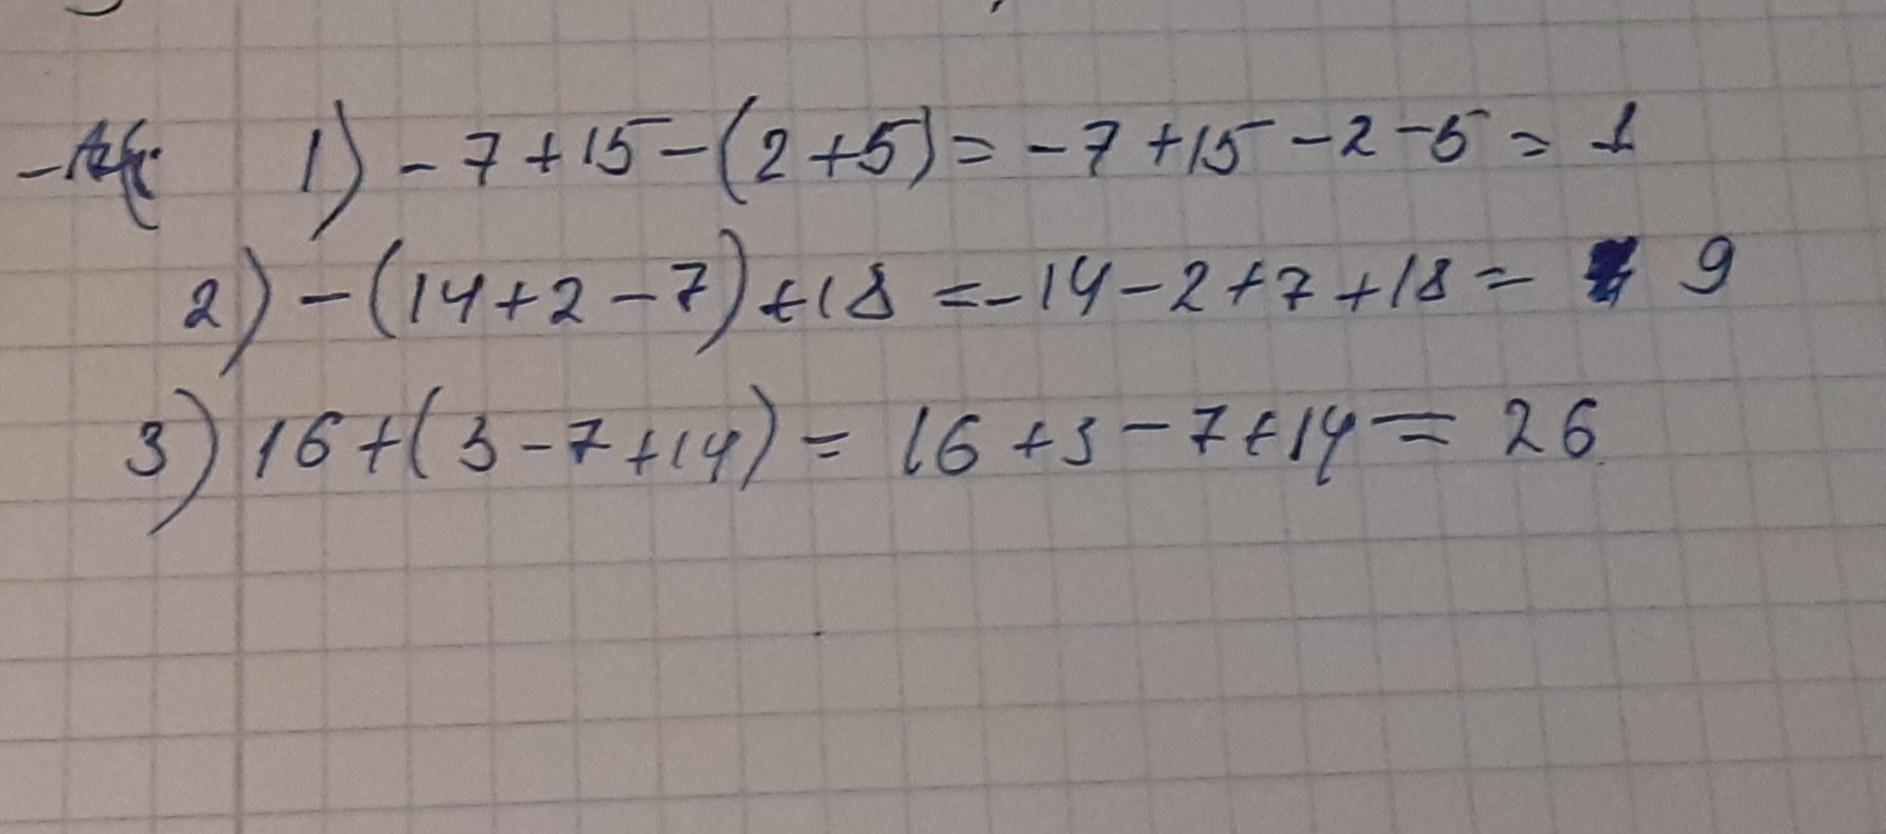 1) - 7 + 15 - (2 + 5) = - 7 + 15 - 2 - 5 = 1
2) - (14 + 2 - 7) + 18 = - 14 - 2 + 7 + 18 = 9
3) 16 + (3 - 7 + 14) = 16 + 3 - 7 + 14 = 26